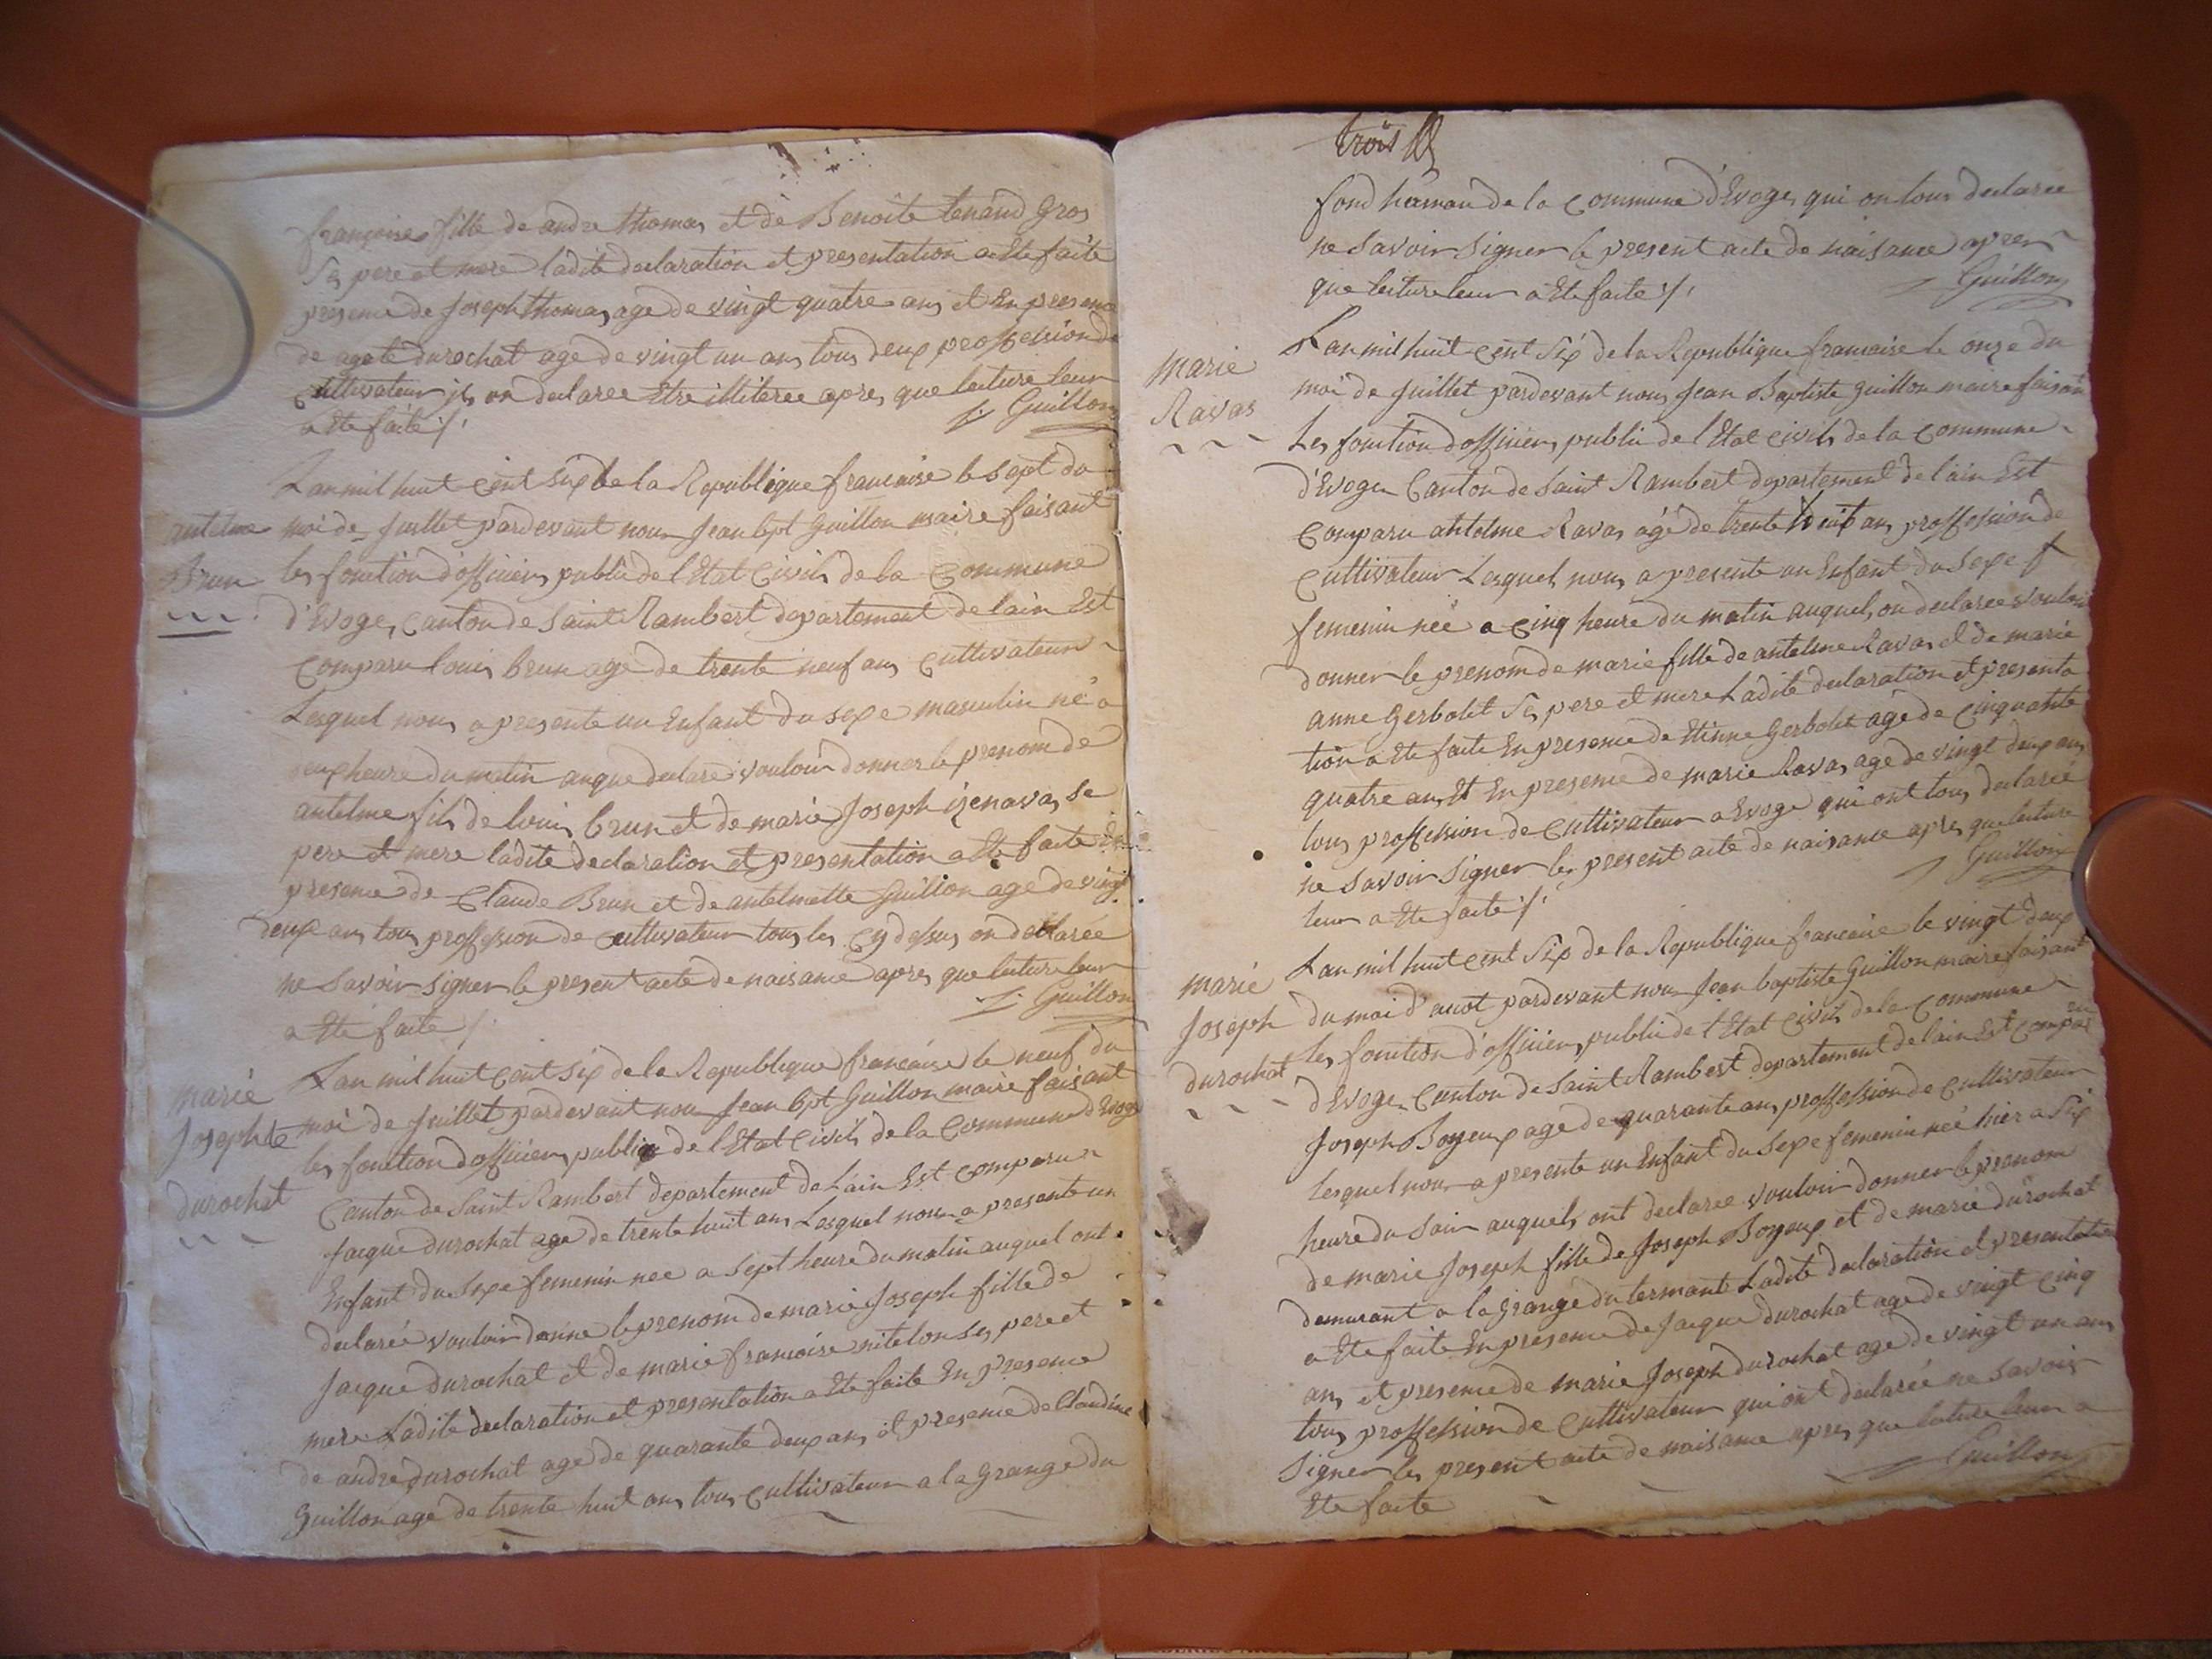 françoise fille de andre thomas et de Benoite tenand Gros
Ses pere et mere ladite declaration et presentation a Ete faite
presence de Joseph thomas age de vingt quatre ans et En presence
de agate durochat age de vingt un ans tous deux proffession de
Cultivateur ils on declaree Etre illiteree apres que lecture leur
a Ete faite /.
Guillon
antelme
Brun
L'an mil huit Cent Six de la Republique francaise le sept du
moi de Juillet pardevant nous Jean bpt Guillon maire faisant
les fonction d'officiers public de l'Etat Civils de la Commune
d'Evoges Canton de Saint Rambert departement de lain Est
Comparu louis brun age de trente neuf ans Cultivateur
Lesquel nous a presente un Enfant du sexe masculin né a
deux heure du matin auquel declaré vouloir donner le prenom de
antelme fils de louis brun et de marie Joseph izenavas se
pere et mere ladite declaration et presentation a Ete faite En
presence de Claude Brun et de antelmette Guillon age de vingt
deux ans tous proffession de Cultivateur tous les Cy dessus on declarée
ne Savoir signer le present acte de naisance apres que lecture leur
a Ete faite /.
Guillon
marie
Josephte
durochat
L'an mil huit Cent Six de la Republique francaise le neuf du
moi de Juillet pardevant nou Jean bpt Guillon maire faisant
les fonction d'officiers public de l'Etat Civils de la Commune d'Evoge
Canton de Saint Rambert departement de Lain Est Comparu
Jacque durochat age de trente huit ans Lesquel nous a presente un
Enfant du Sexe femenin nee a Sept heure du matin auquel ont
declarée vouloir donne le prenom de marie Joseph fille de
Jacque durochat et de marie francoise mitelon Ses pere et
mere Ladite declaration et presentation a Ete faite En presence
de andre durochat age de quarante deux ans et presence de Claudine
Guillon age de trente huit ans tous Cultivateur a la Grange du
trois
fond hameau de la Commune d'Evoges qui on tous declaree
ne Savoir Signer le present acte de naisance apres
que lecture leur a Ete faite /.
Guillon
Marie
Ravas
L'an mil huit Cent Six de la Republique francaise le onze du
moi de Juillet pardevant nous Jean Baptiste Guillon maire faisant
Les fonction d'officiers public de l'Etat Civils de la Commune
d'Evoges Canton de Saint Rambert departement de l'ain Est
Comparu antelme Ravas âgé de trente huit ans proffession de
Cultivateur Lesquel nous a presente un Enfant du Sexe
femenin née a Cinq heure du matin auquel on declaree vouloir
donner le prenom de marie fille de antelme Ravas et de marie
anne Gerbolet Ses pere et mere Ladite declaration et presenta
tion a Ete faite En presence de Etinne Gerbolet age de Cinquante
quatre ans Et En presence de marie Ravas age de vingt deux ans
tous proffession de Cultivateur a Evoge qui ont tous declarée
ne Savoir Signer le present acte de naisance apres que lecture
leur a Ete faite /.
Guillon
marie
Joseph
durochat
L'an mil huit cent Six de la Republique francaise le vingt deux
du moi d'aout pardevant nou Jean baptiste Guillon maire faisant
Les fonction d'officiers public de l'Etat Civils de la Commune
d'Evoge Canton de Saint Rambert departement de lain Est Comparu
Joseph Boyeux age de quarante ans proffession de Cultivateur
Lesquel nous a presente un Enfant du Sexe femenin née hier a Six
heure du Soir auquels ont declaree vouloir donner le prenom
de marie Joseph fille de Joseph Boyeux et de marie durochat
demurant a la grange du termant Ladite declaration et presentation
a Ete faite En presence de Jacque durochat age de vingt Cinq
ans et presence de marie Joseph durochat age de vingt un ans
tous proffession de Cultivateur qui ont declarée ne Savoir
Signer le present acte de naisance apres que lecture leur a
Ete faite
Guillon